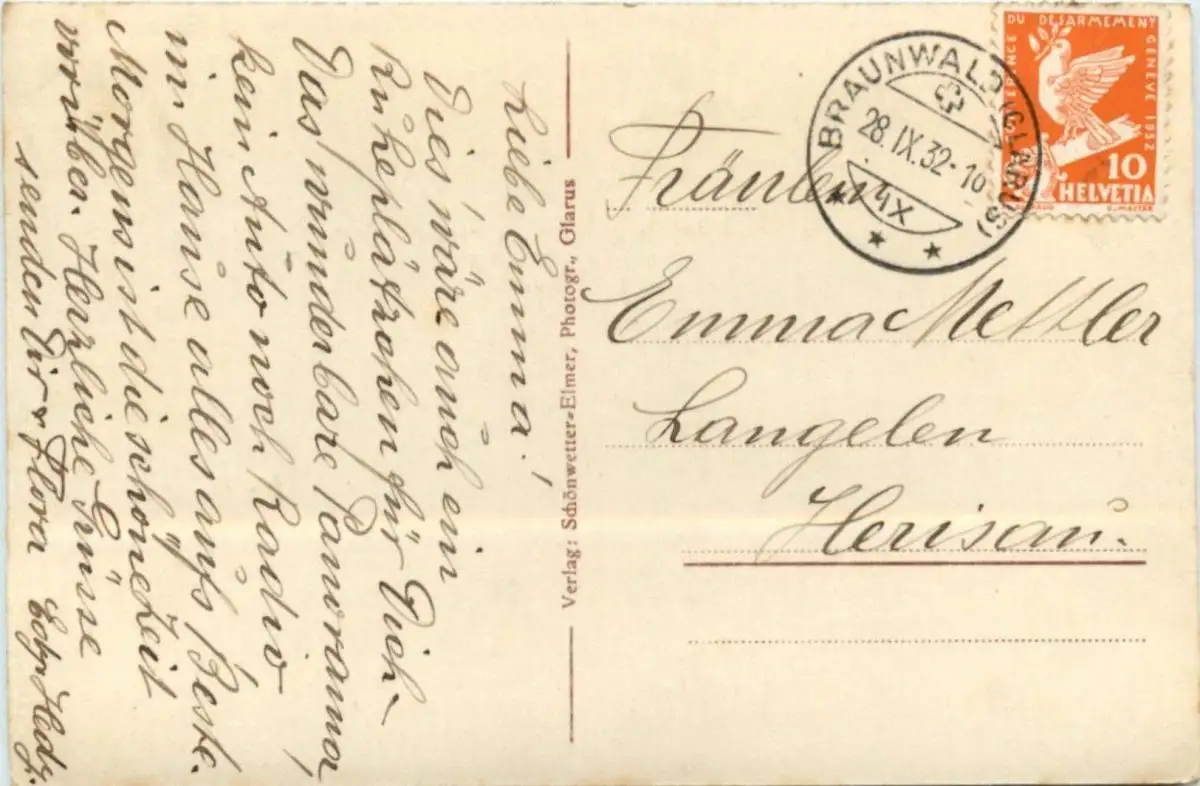 Liebe Emma!
Dies wäre auch ein
Ruheplätzchen für Dich.
Das wunderbare Panorama,
kein Auto noch Radio
im Hause alles aufs Beste.
Morgen ist die schöne Zeit
vorüber. Herzliche Grüsse
senden Dir Flora Hedy.
Verlag: Schönwetter-Elmer, Photogr., Glarus
BRAUNWALD (GLARUS)
28.IX.32-10
DU DESARMEMENT GENEVE 1932
10
HELVETIA
Fräulein
Emma Mettler
Langelen
Herisau.